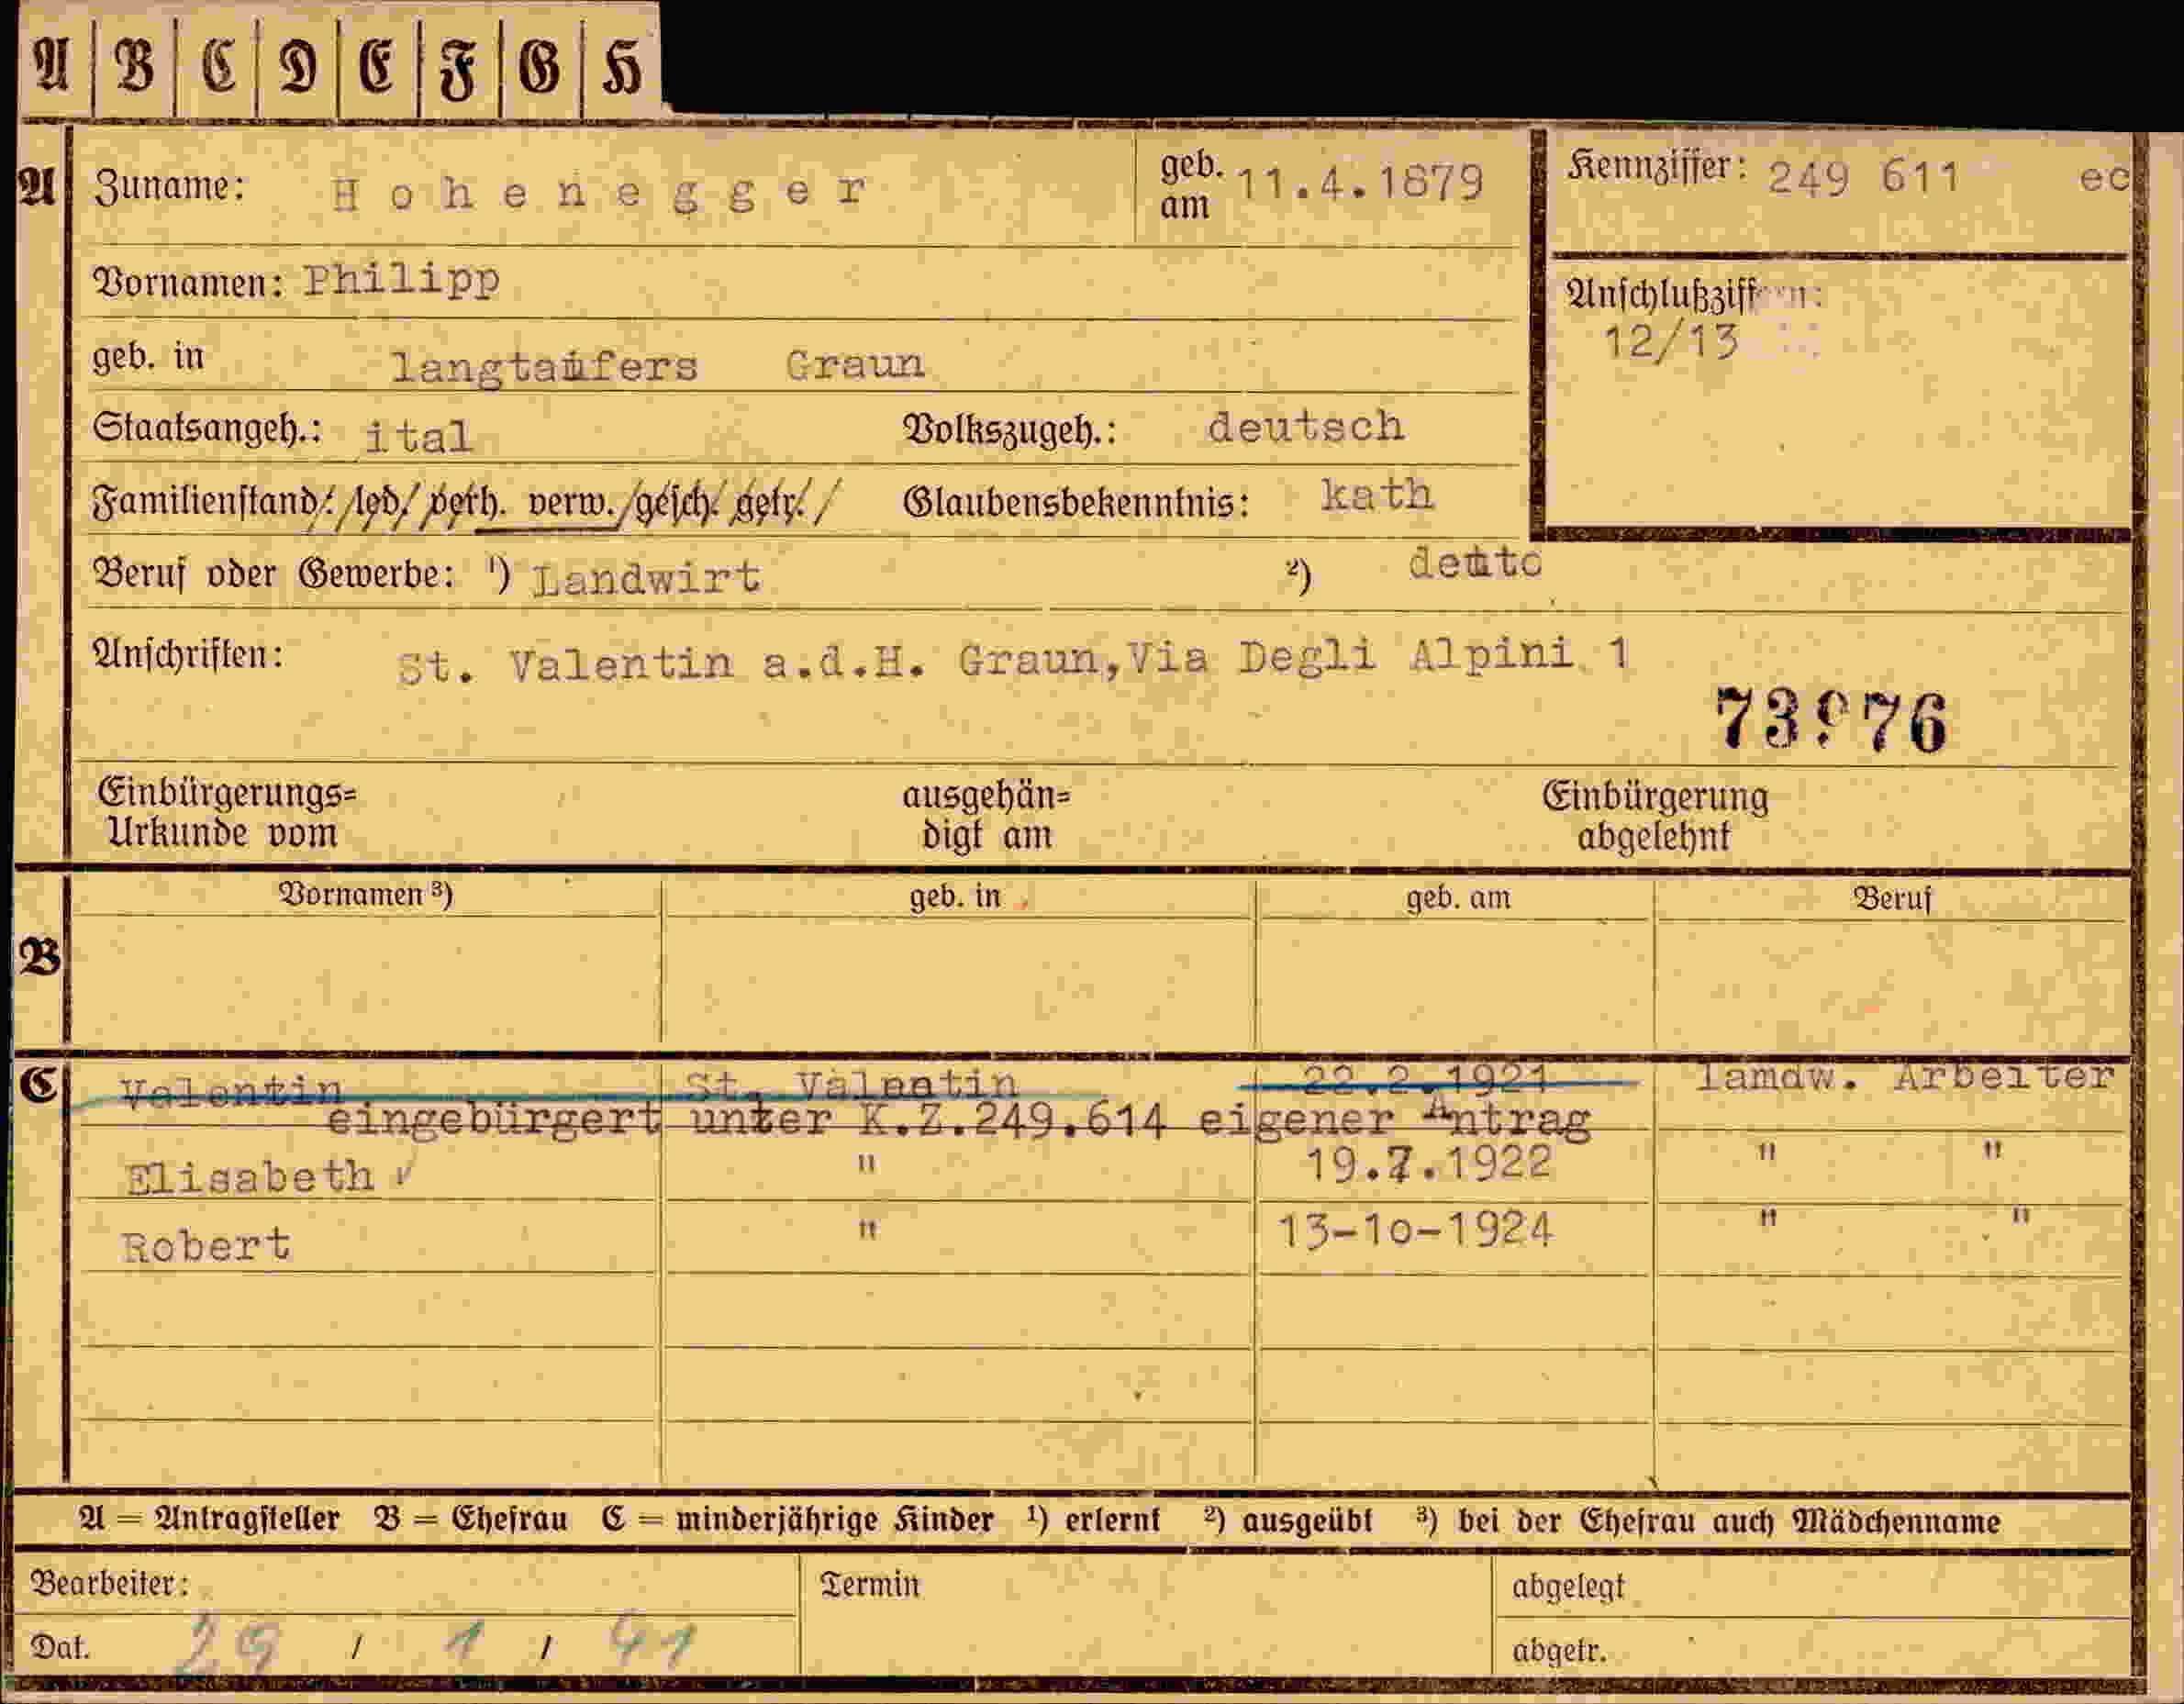 A B C D E F G H
A Zuname: Hohenegger geb. am 11.4.1879 Kennziffer: 249 611 ec
Vornamen: Philipp
Anschlußziffern:
12/13
geb. in langtaufers Graun
Staatsangeh.: ital Volkszugeh.: deutsch
Familienstand: led. verh. verw. gesch. getr. Glaubensbekenntnis: kath
Beruf oder Gewerbe: ¹) Landwirt ²) detto
Anschriften: St. Valentin a.d.H. Graun,Via Degli Alpini 1
Einbürgerungs=
Urkunde vom
ausgehän=
digt am
Einbürgerung
abgelehnt
Vornamen ³) geb. in geb. am Beruf
B
C Valentin St. Valentin 22.2.1921 lamdw. Arbeiter
eingebürgert unter K.Z.249.614 eigener Antrag
Elisabeth " 19.7.1922 " "
Robert " 13-10-1924 " "
A = Antragsteller B = Ehefrau C = minderjährige Kinder ¹) erlernt ²) ausgeübt ³) bei der Ehefrau auch Mädchenname
Bearbeiter: Termin abgelegt
Dat. 29 / 1 / 41 abgetr.